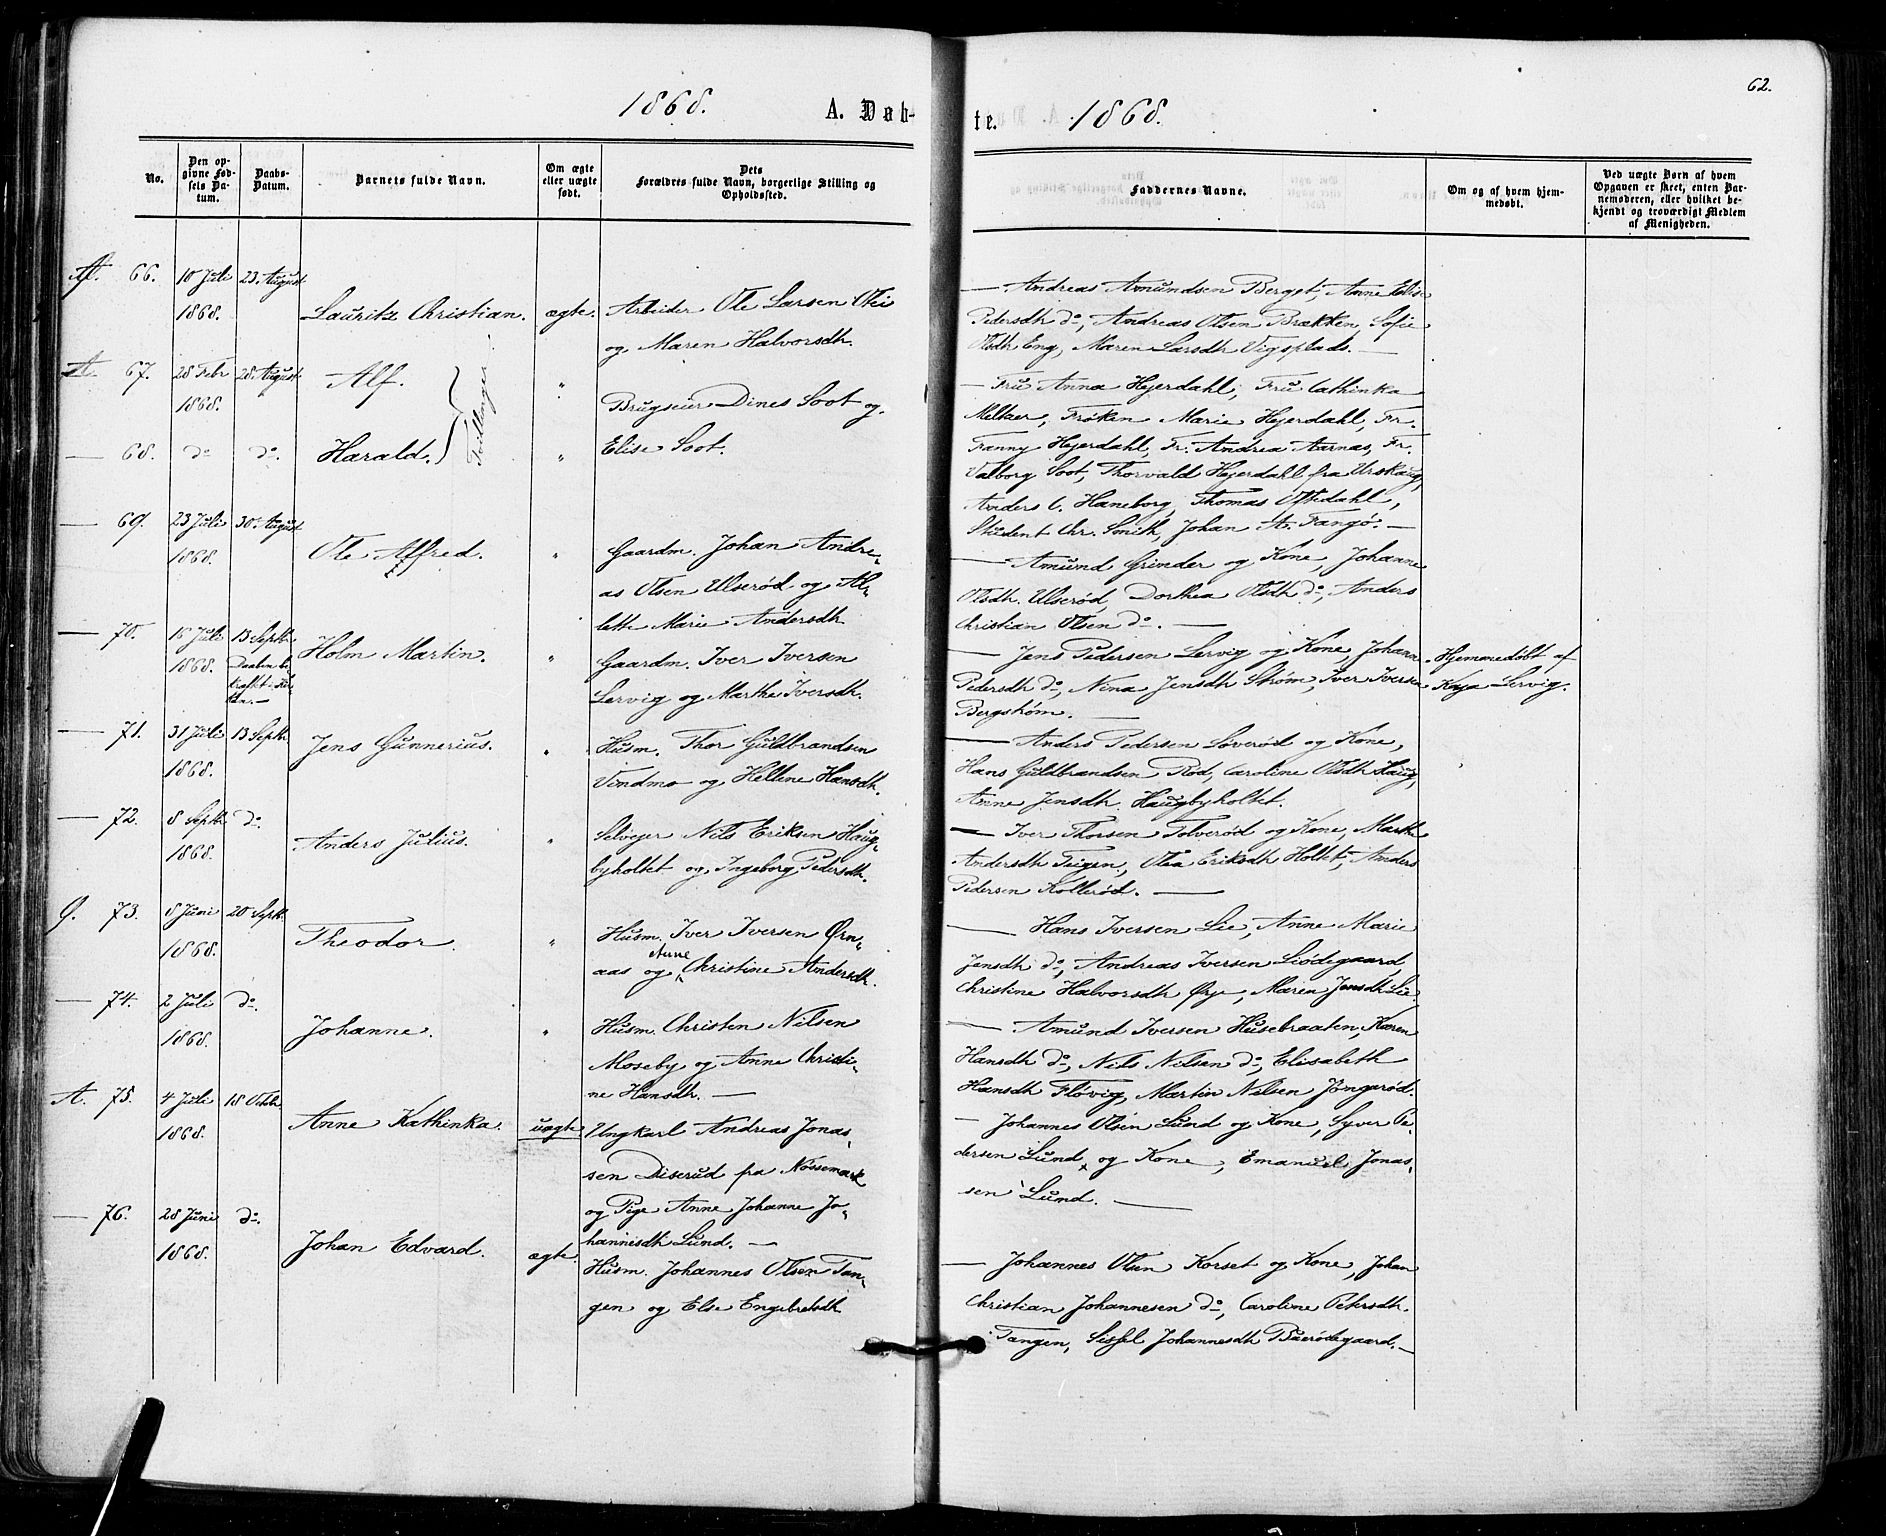 62.
1868. A. Døb-
te. 1868.
No.
Den op-
givne Fød-
sels Da-
tum.
Daabs-
Datum.
Barnets fulde Navn.
Om ægte
eller uægte
født.
Dets
Forældres fulde Navn, borgerlige Stilling og
Opholdssted.
Faddernes Navne.
Om og af hvem hjem-
medøbt.
Ved uægte Børn af hvem
Opgaven er skeet, enten Bar-
nemoderen, eller hvilket be-
kjendt og troværdigt Medlem
af Menigheden.
A. 66. 10 Juli 23. August
1868. Lauritz Christian. ægte. Arbeider Ole Larsen
og Maren Halvorsdh.
— Andreas Amundsen Berget, Anne Elise
Pedersdh do, Andreas Olsen Brækken, Sofie
Olsdh Eng, Maren Larsdh Vigsplads. —
A. 67. 28 Febr 28. August Alf. "
1868. Tvillinger
Brugseier Dines Soot og
— 68. do do. Harald. " Elise Soot.
— Fru Anna Hejerdahl, Fru Cathinka
Meltzer, Frøken Marie Hejerdahl, Fr.
Fanny Hejerdahl, Fr. Andrea Aarnas, Fr.
Valborg Soot, Thorvald Hejerdahl fra Urskaug,
Anders C. Haneborg, Thomas Oftedahl,
Student Chr. Smith, Johan A. Tangø. —
— 69. 23 Juli 30. August
1868. Ole Alfred. " Gaardm. Johan Andre-
as Olsen Ulserød og Al-
lette Marie Andersdh
— Amund Grinder og Kone, Johanne
Olsdh. Ulserød, Dorthea Olsdh do, Anders
Christian Olsen do. —
— 70. 15 Juli 13 Septbr.
1868. Daaben be-
kræftet i Kir-
ken. —
Holm Martin. " Gaardm. Iver Iversen
Lervig og Marthe Iversdh.
— Jens Pedersen Lervig og Kone, Johanne
Pedersdh do, Nina Jensdh Strøm, Iver Iversen
Bergstrøm. —
Hjemmedøbt af
Kaja Lervig.
— 71. 31 Juli 13 Septbr.
1868. Jens Gunnerius. " Husm. Thor Guldbrandsen
Vindmo og Hellene Hansdh.
— Anders Pedersen Løverød og Kone,
Hans Guldbrandsen Rød, Caroline Olsdh Haug,
Anne Jensdh. Haugbyholtet.
— 72. 8 Septbr. do.
1868. Anders Julius. " Selveger Nils Eriksen Haug-
byholtet og Ingeborg Pedersdh.
— Iver Thorsen Tolverød og Kone, Marth
Andersdh Teigen, Olea Eriksdh Holtet, Anders
Pedersen Kollerød. —
Ø. 73. 8 Juni 20 Septbr.
1868. Theodor. " Husm. Iver Iversen Ørn-
aas og Anne Christine Andersdh.
— Hans Iversen Lie, Anne Marie
Jensdh do, Andreas Iversen Liødegaard
Christine Halvorsdh Ørje, Maren Jensdh Lie.
— 74. 2 Juli do.
1868. Johanne. " Husm. Christen Nilsen
Moseby og Anne Christi-
ne Hansdh. —
— Amund Iversen Husebraaten, Karen
Hansdh do, Nils Nilsen do, Elisabeth
Hansdh Fløvig, Martin Nilsen Jongerød.
A. 75. 4 Juli 18 Octobr
1868. Anne Kathinka. uægte Ungkarl Andreas Jonas-
sen Diserud fra Nössemark
og Pige Anne Johanne Jo-
hannesdh Lund. —
— Johannes Olsen Lund og Kone, Syver Pe-
dersen Lund og Kone, Emanuel Jonas-
sen Lund. —
— 76. 28 Juni do.
1868. Johan Edvard. ægte. Husm. Johannes Olsen Tan-
gen og Else Engebretsdh
— Johannes Olsen Korset og Kone, Johan
Christian Johannesen do, Caroline Petersdh.
Tangen, Sissel Johannesdh Buerødegaard. —